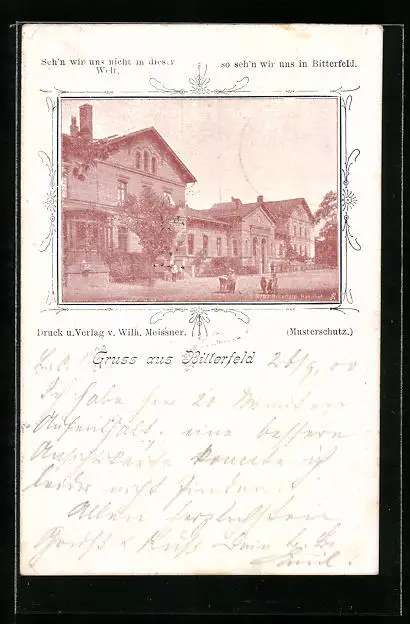 Seh'n wir uns nicht in dieser Welt,
so seh'n wir uns in Bitterfeld.
Bitterfeld, Bahnhof
Druck u. Verlag v. Wilh. Meissner.
(Musterschutz.)
Gruss aus Bitterfeld
28/9. 00
Ich habe hier 20 Minuten
Aufenthalt. eine bessere
Ansichtskarte konnte ich
leider nicht finden.
Allen herzlichsten
Gruß & Kuß Dein
Emil.